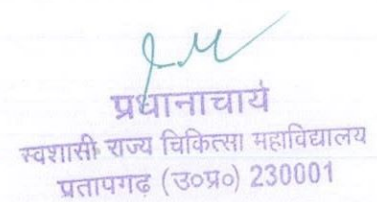 प्रधानाचार्य
स्वशासी राज्य चिकित्सा महाविद्यालय
प्रतापगढ़ (उ०प्र०) 230001